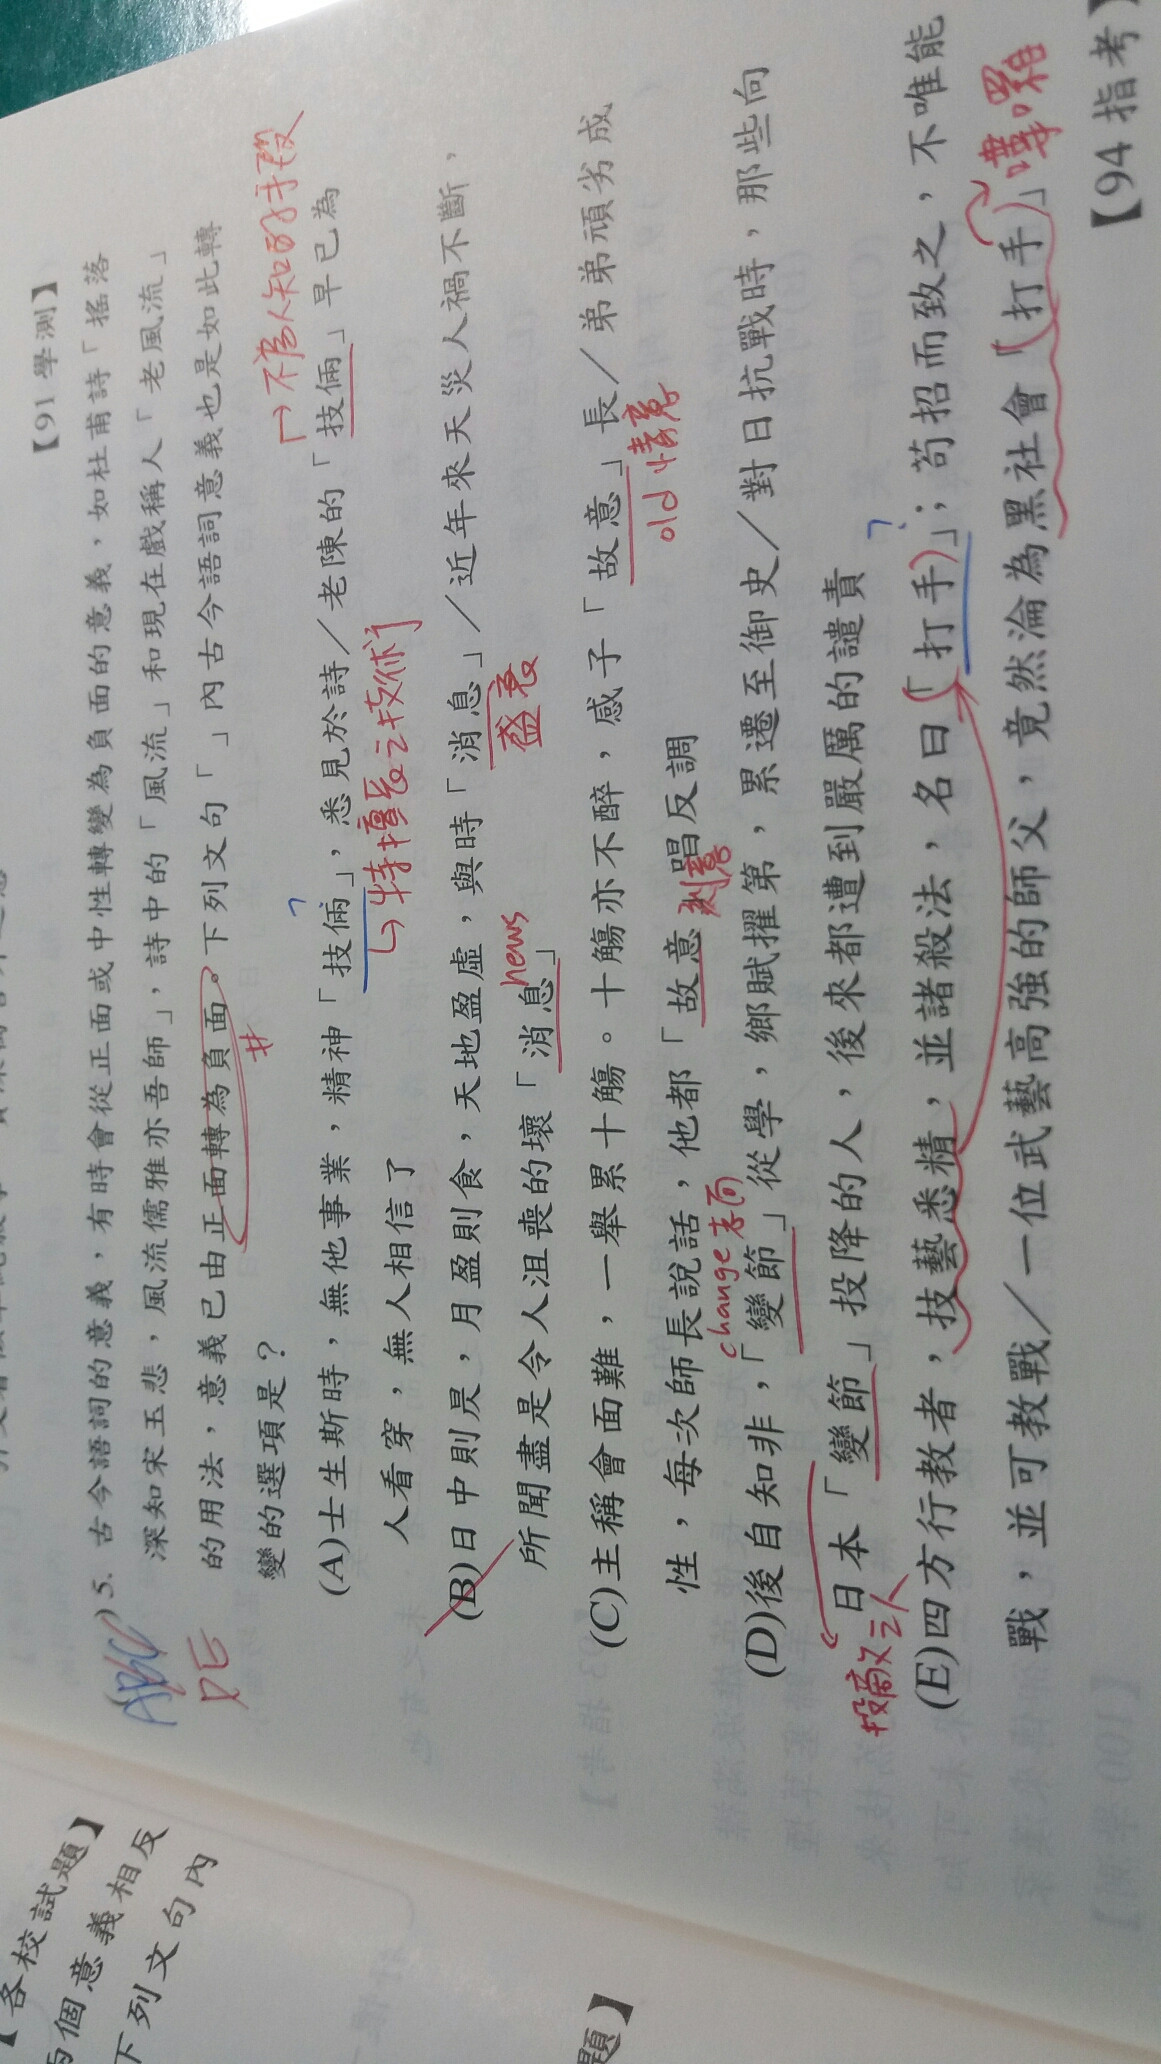 【91 學測】
)5. 古今語詞的意義，有時會從正面或中性轉變為負面的意義，如杜甫詩「搖落
深知宋玉悲，風流儒雅亦吾師」，詩中的「風流」和現在戲稱人「老風流」
的用法，意義已由正面轉為負面。下列文句「」內古今語詞意義也是如此轉
變的選項是？
ABC
DE
廿
不為人知的手段
(A)士生斯時，無他事業，精神「技倆」，悉見於詩／老陳的「技倆」早已為
特擅長之技術
人看穿，無人相信了
(B)日中則昃，月盈則食，天地盈虛，與時「消息」／近年來天災人禍不斷，
盛衰
news
所聞盡是令人沮喪的壞「消息」
(C)主稱會面難，一舉累十觴。十觴亦不醉，感子「故意」長／弟弟頑劣成
old 情意
性，每次師長說話，他都「故意」唱反調
刻意
change
(D)後自知非，「變節」從學，鄉賦擢第，累遷至御史／對日抗戰時，那些向
日本「變節」投降的人，後來都遭到嚴厲的譴責
投敵之人
(E)四方行教者，技藝悉精，並諸殺法，名曰「打手」；苟招而致之，不唯能
戰，並可教戰／一位武藝高強的師父，竟然淪為黑社會「打手」
嘍囉
【94 指考】
【各校試題】
個意義相反
下列文句內
題】